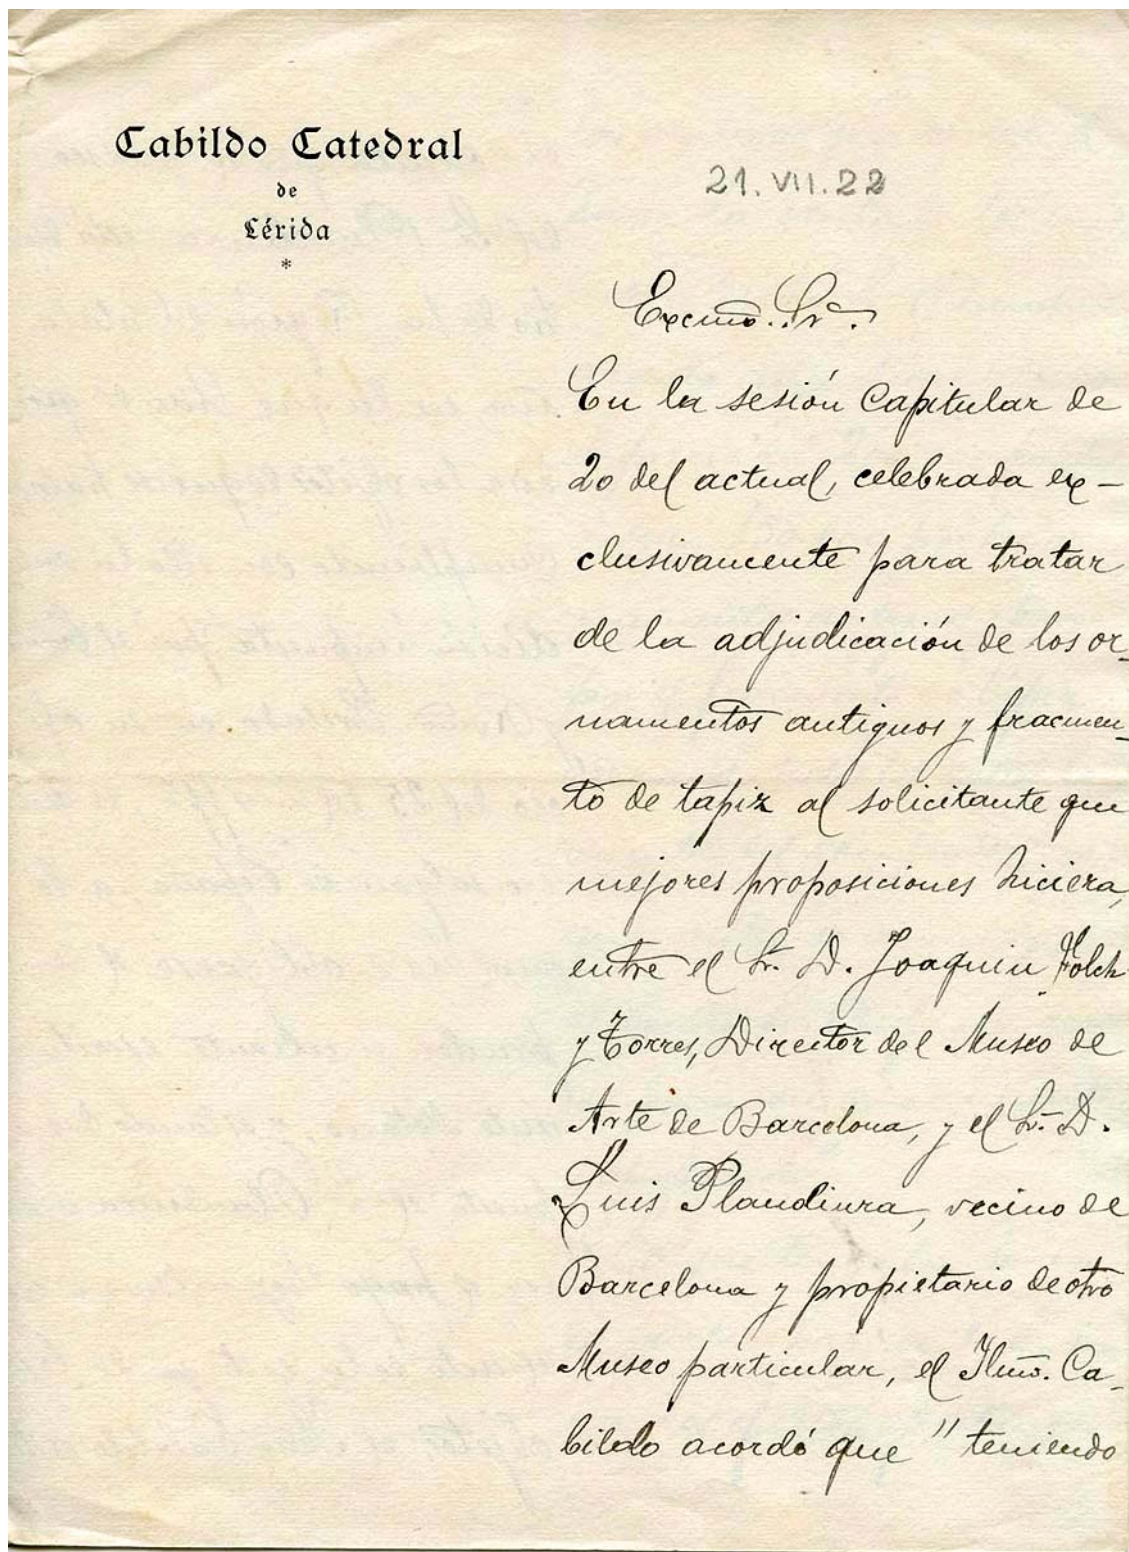 Cabildo Catedral
de
Lérida
*
21.VII.22
Excmo. Sr.
En la sesión Capitular de
20 del actual, celebrada ex-
clusivamente para tratar
de la adjudicación de los or-
namentos antiguos y fracmen-
to de tapiz al solicitante que
mejores proposiciones hiciera,
entre el Sr. D. Joaquin Folch
y Torres, Director del Museo de
Arte de Barcelona, y el Sr. D.
Luis Plandiura, vecino de
Barcelona y propietario de otro
Museo particular, el Ilmo. Ca-
bildo acordó que "teniendo